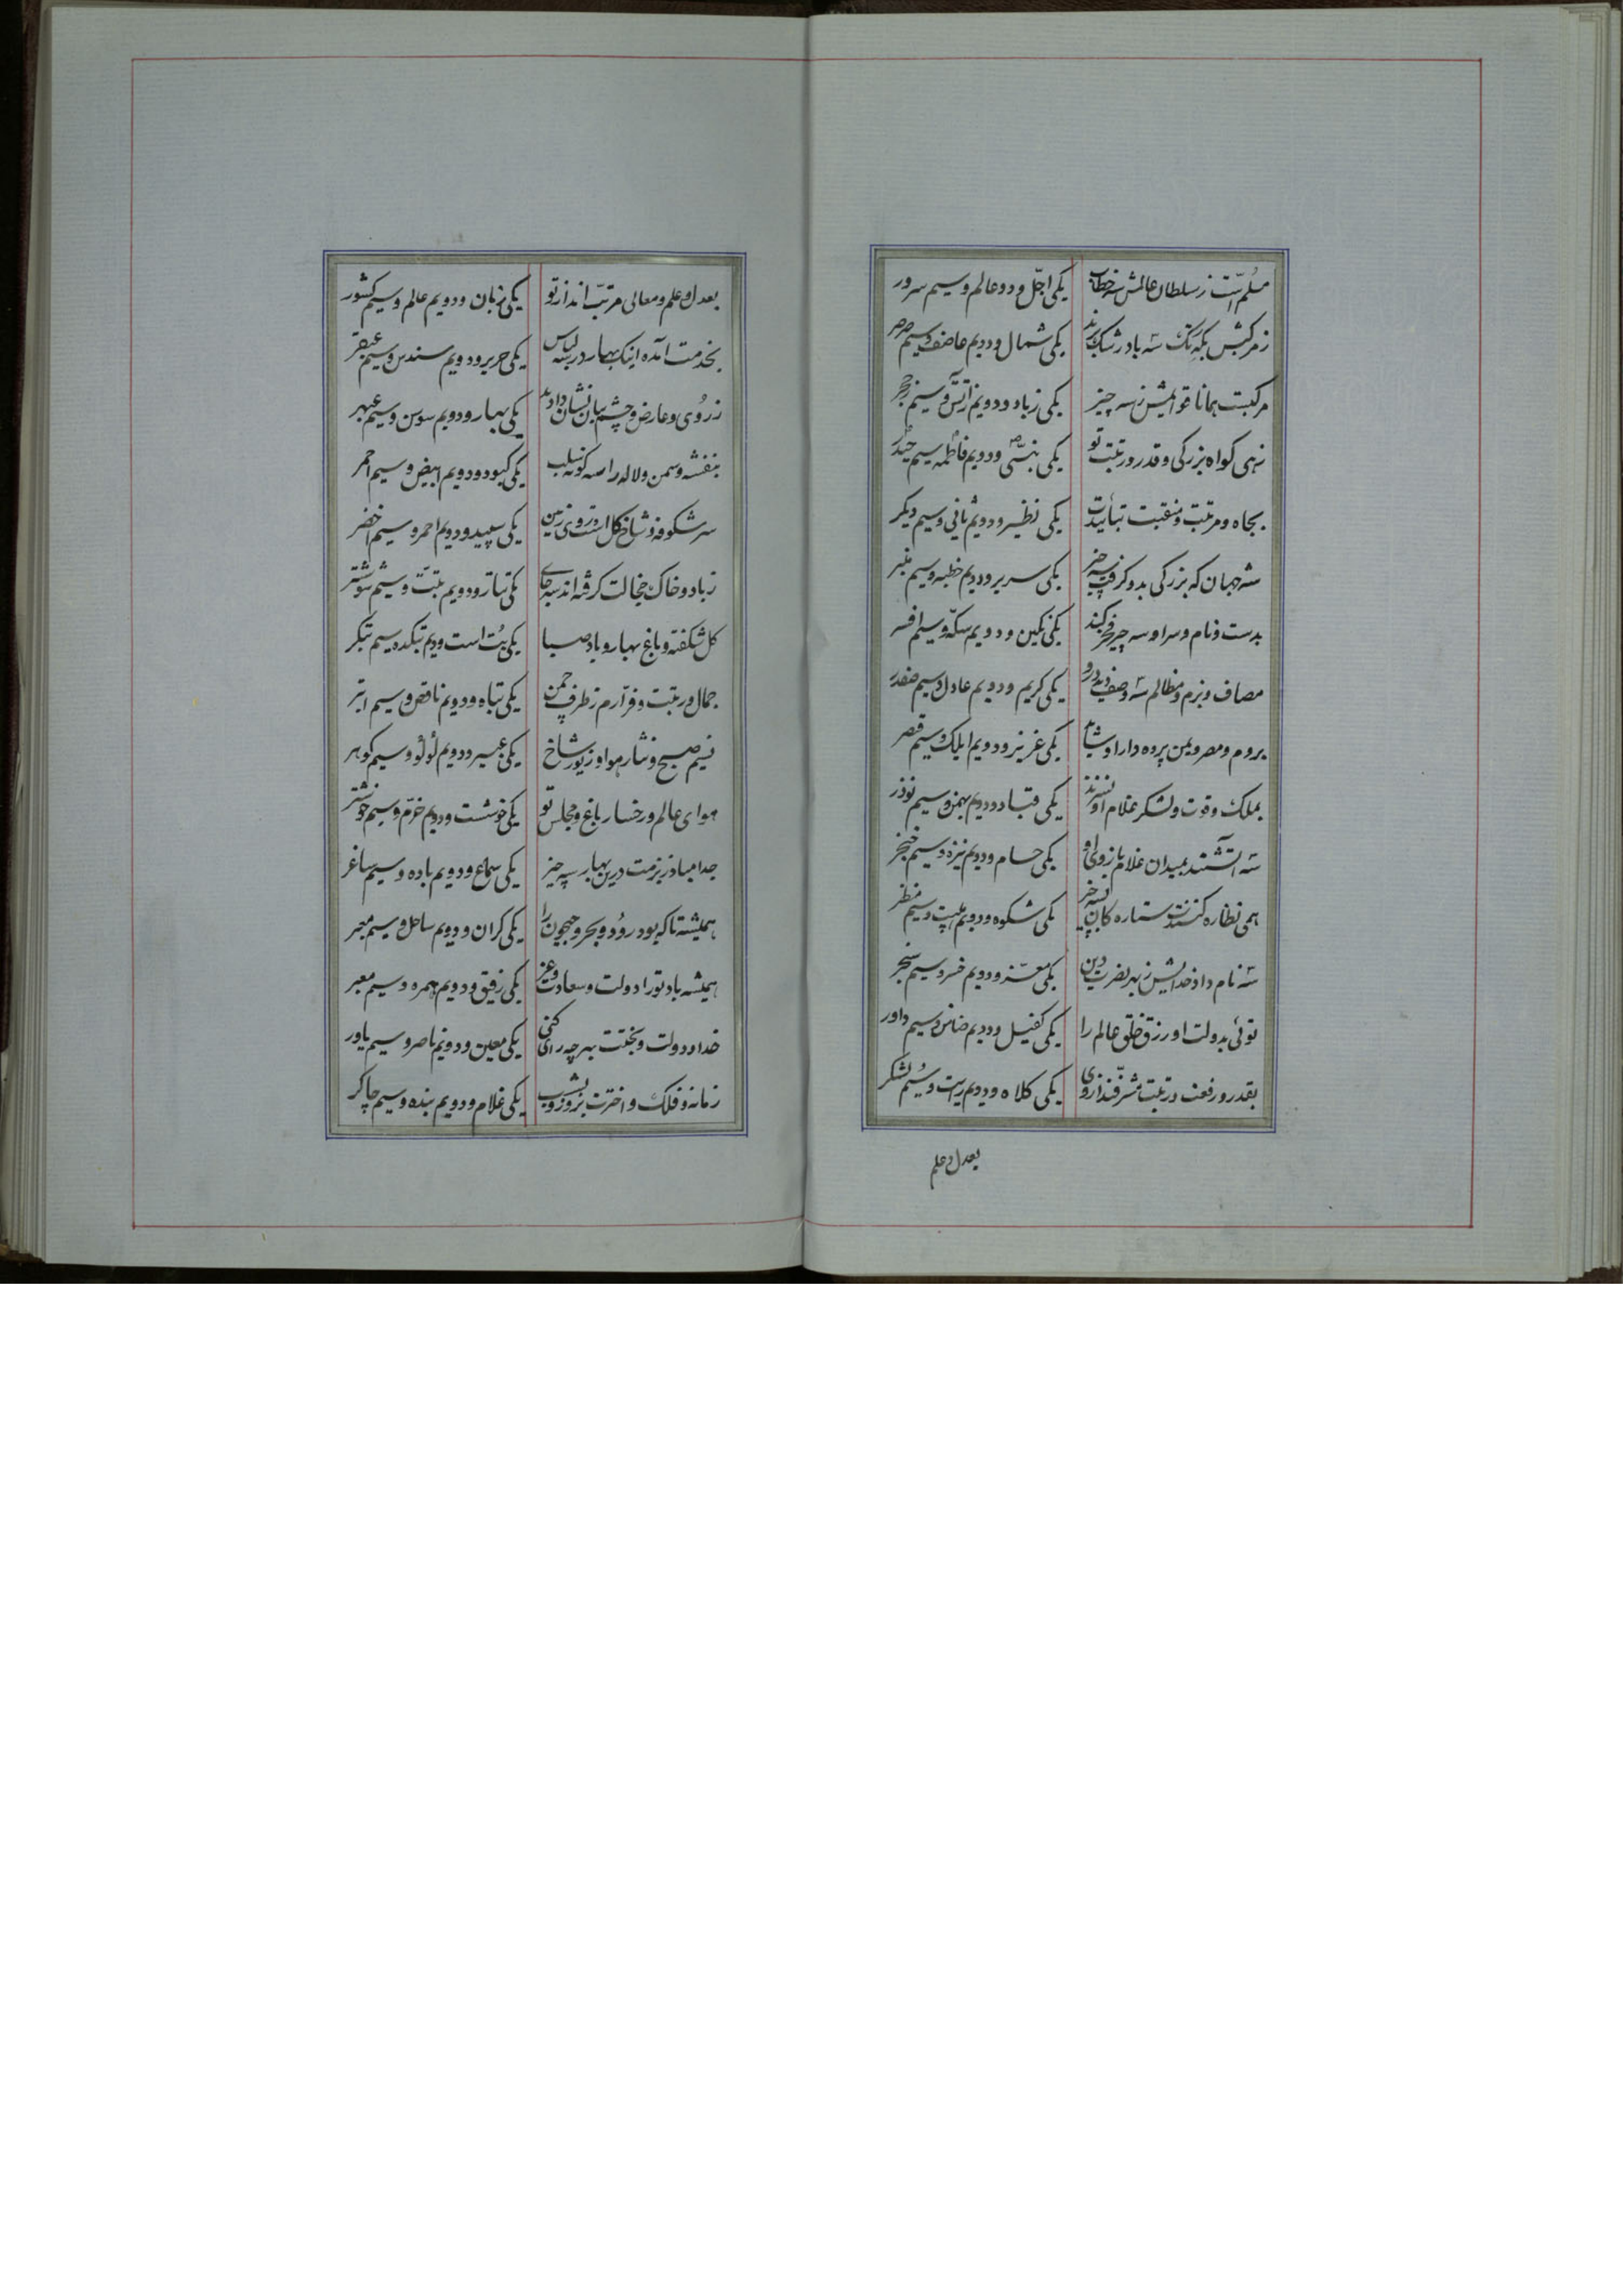 مسلم است ز سلطان عالمش سه خطاب یکی اجل و دو عالم و سیم سرور
ز مرکبش بگه تک سه باد رشک برند یکی شمال و دویم عاصف و سیم صرصر
مرکبت همانا قوایمش ز سه چیز یکی ز باد و دویم ز آتش و سیم ز حجر
زهی گواه بزرگی و قدر و رتبت تو یکی نبی و دویم فاطمه سیم حیدر
بجاه و مرتبت و منقبت نیابندت یکی نظیر و دویم ثانی و سیم دیگر
شه جهان که بزرگی بدو گرفت سه چیز یکی سریر و دویم خطبه و سیم منبر
بدست و نام و سر او سه چیز فخر کنند یکی نگین و دویم سکه و سیم افسر
مصاف و بزم و مظالم سه وصف دید درو یکی کریم و دویم عادل و سیم صفدر
بروم و مصر و یمن پرده دار او شاید یکی عزیز و دویم ایلک و سیم قیصر
بملک و قوت و لشکر غلام او نسزند یکی قباد و دویم بهمن و سیم نوذر
سه آتشند بمیدان غلام بازوی او یکی حسام و دویم نیزه و سیم خنجر
همی نظاره کنندت ستاره کان بسه چیز یکی شکوه و دویم هیبت و سیم منظر
سه نام داد خدایش ز بهر نصرت دین یکی معز و دویم خسرو و سیم سنجر
توئی بدولت او رزق خلق عالم را یکی کفیل و دویم ضامن و سیم داور
بقدر و رفعت و رتبت مشرفند از وی یکی کلاه و دویم رایت و سیم لشکر
بعدل و علم
بعدل و علم و معالی مرتب اند از تو یکی زمان و دویم عالم و سیم کشور
بخدمت آمده اینک بهار در سه لباس یکی حریر و دویم سندس و سیم عبقر
ز روی و عارض و چشم بتان نشان دادند یکی بهار و دویم سوسن و سیم عبهر
بنفشه و سمن و لاله را سه گونه سلب یکی کبود و دویم ابیض و سیم احمر
سر شکوفه و شاخ گل است و روی زمین یکی سپید و دویم احمر و سیم اخضر
ز باد و خاک خجالت گرفته اند سه جای یکی تتار و دویم تبت و سیم ششتر
گل شکفته و باغ بهار و باد صبا یکی بت است و دویم بتکده سیم بتگر
جمال و رتبت و فر ارم ز طرف چمن یکی تباه و دویم ناقص و سیم ابتر
نسیم صبح و نثار هوا و زیور شاخ یکی عبیر و دویم لؤلؤ و سیم گوهر
هوای عالم و رخسار باغ و مجلس تو یکی خوشست و دویم خرم و سیم خوشتر
جدا مباد ز بزمت درین بهار سه چیز یکی سماع و دویم باده و سیم ساغر
همیشه تا که بود رود و بحر و جیحون را یکی کران و دویم ساحل و سیم معبر
همیشه باد تو را دولت و سعادت و عز یکی رفیق و دویم همره و سیم معبر
خدا و دولت و بختت بهر چه رای کنی یکی معین و دویم ناصر و سیم یاور
زمانه و فلک و اخترت بروز و بشب یکی غلام و دویم بنده و سیم چاکر